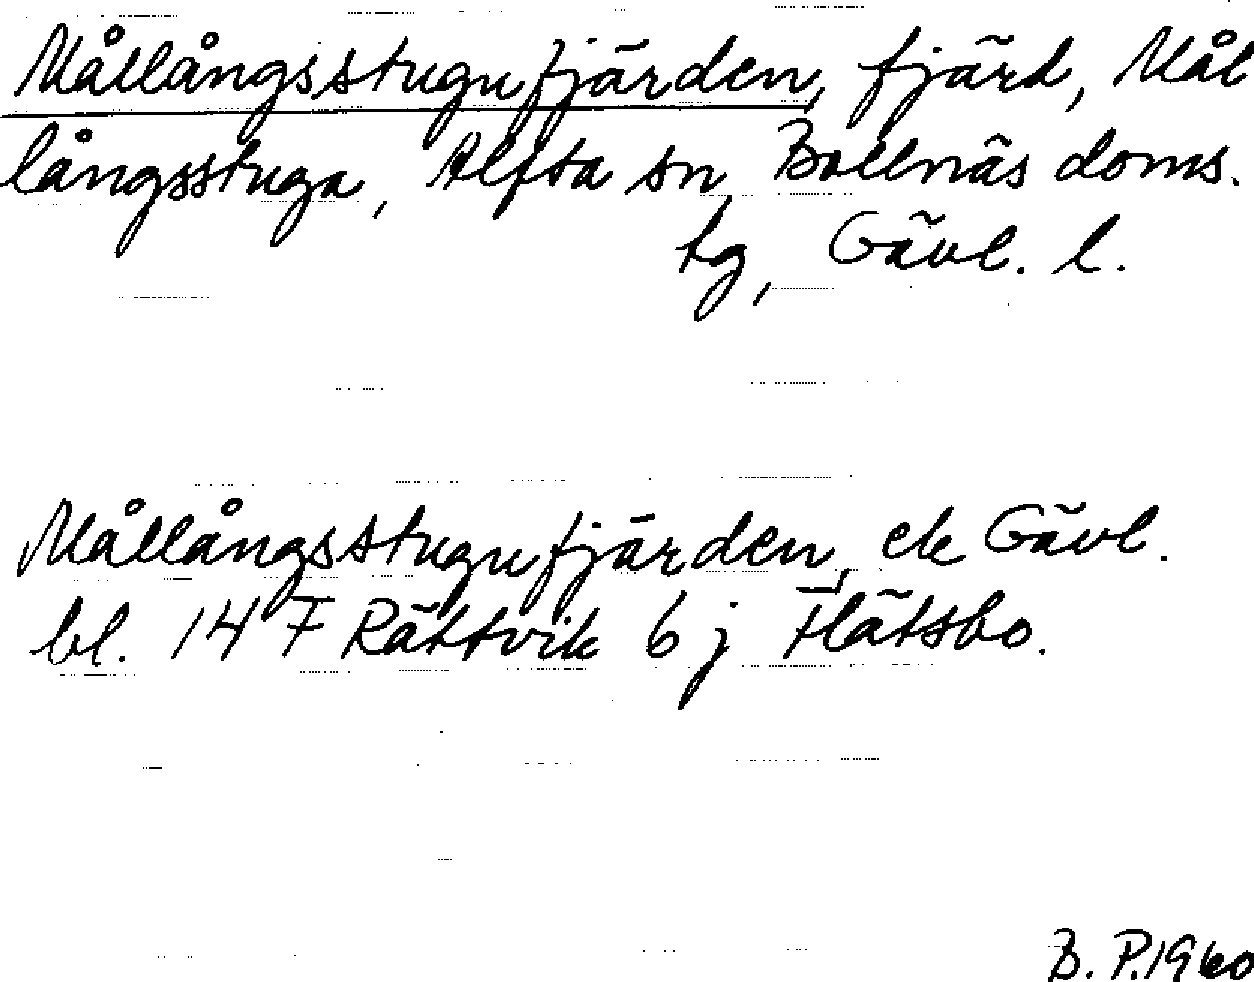 Mållångsstugufjärden, fjärd, Mål
långsstuga, Alfta sn, Bollnäs doms.
hg, Gävl. l.
Mållångsstugufjärden, ek Gävl.
bl. 14 F Rättvik 6 j Flätsbo.
B. P. 1960